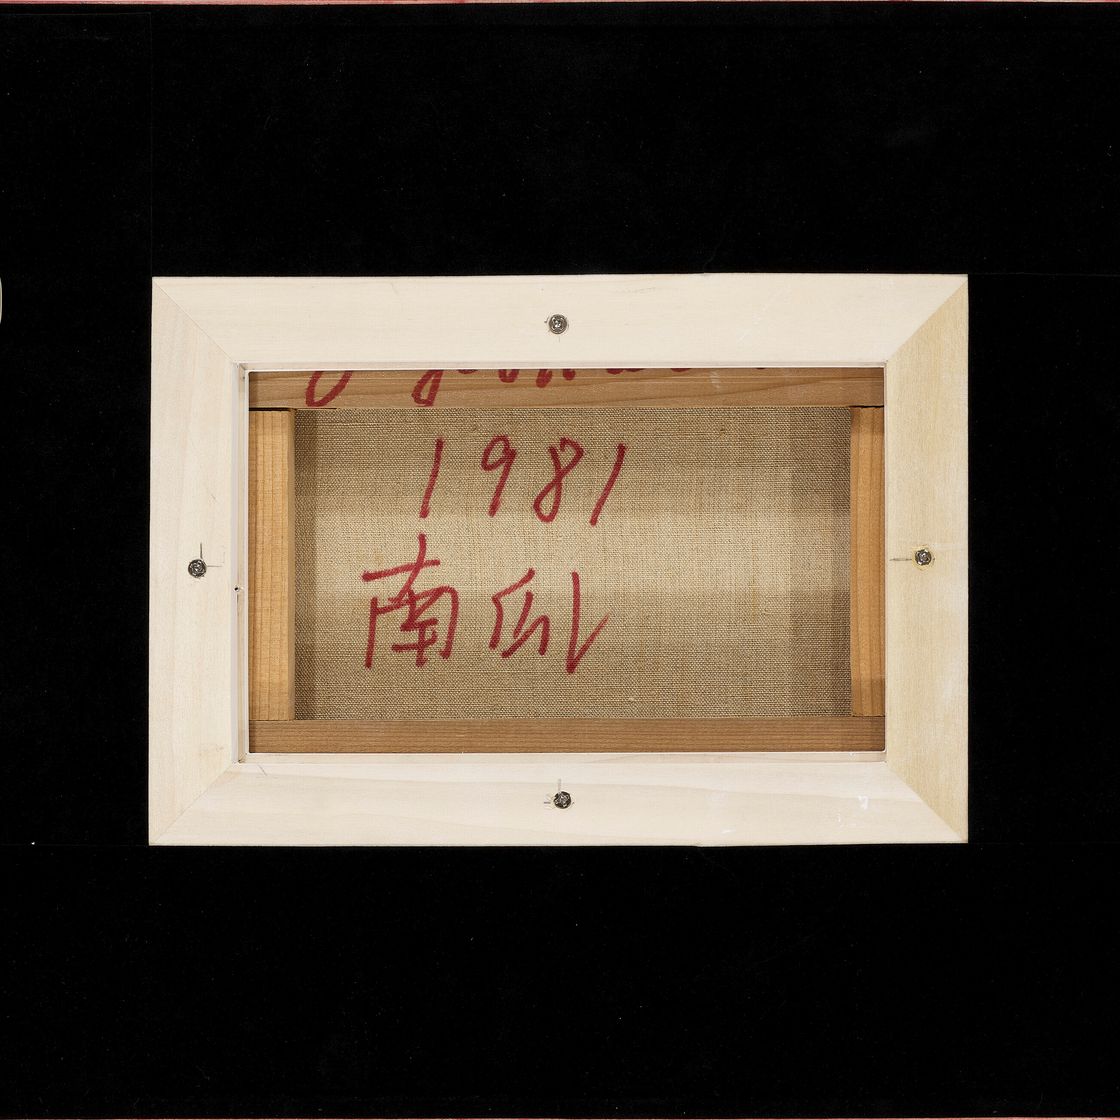 1981
南瓜